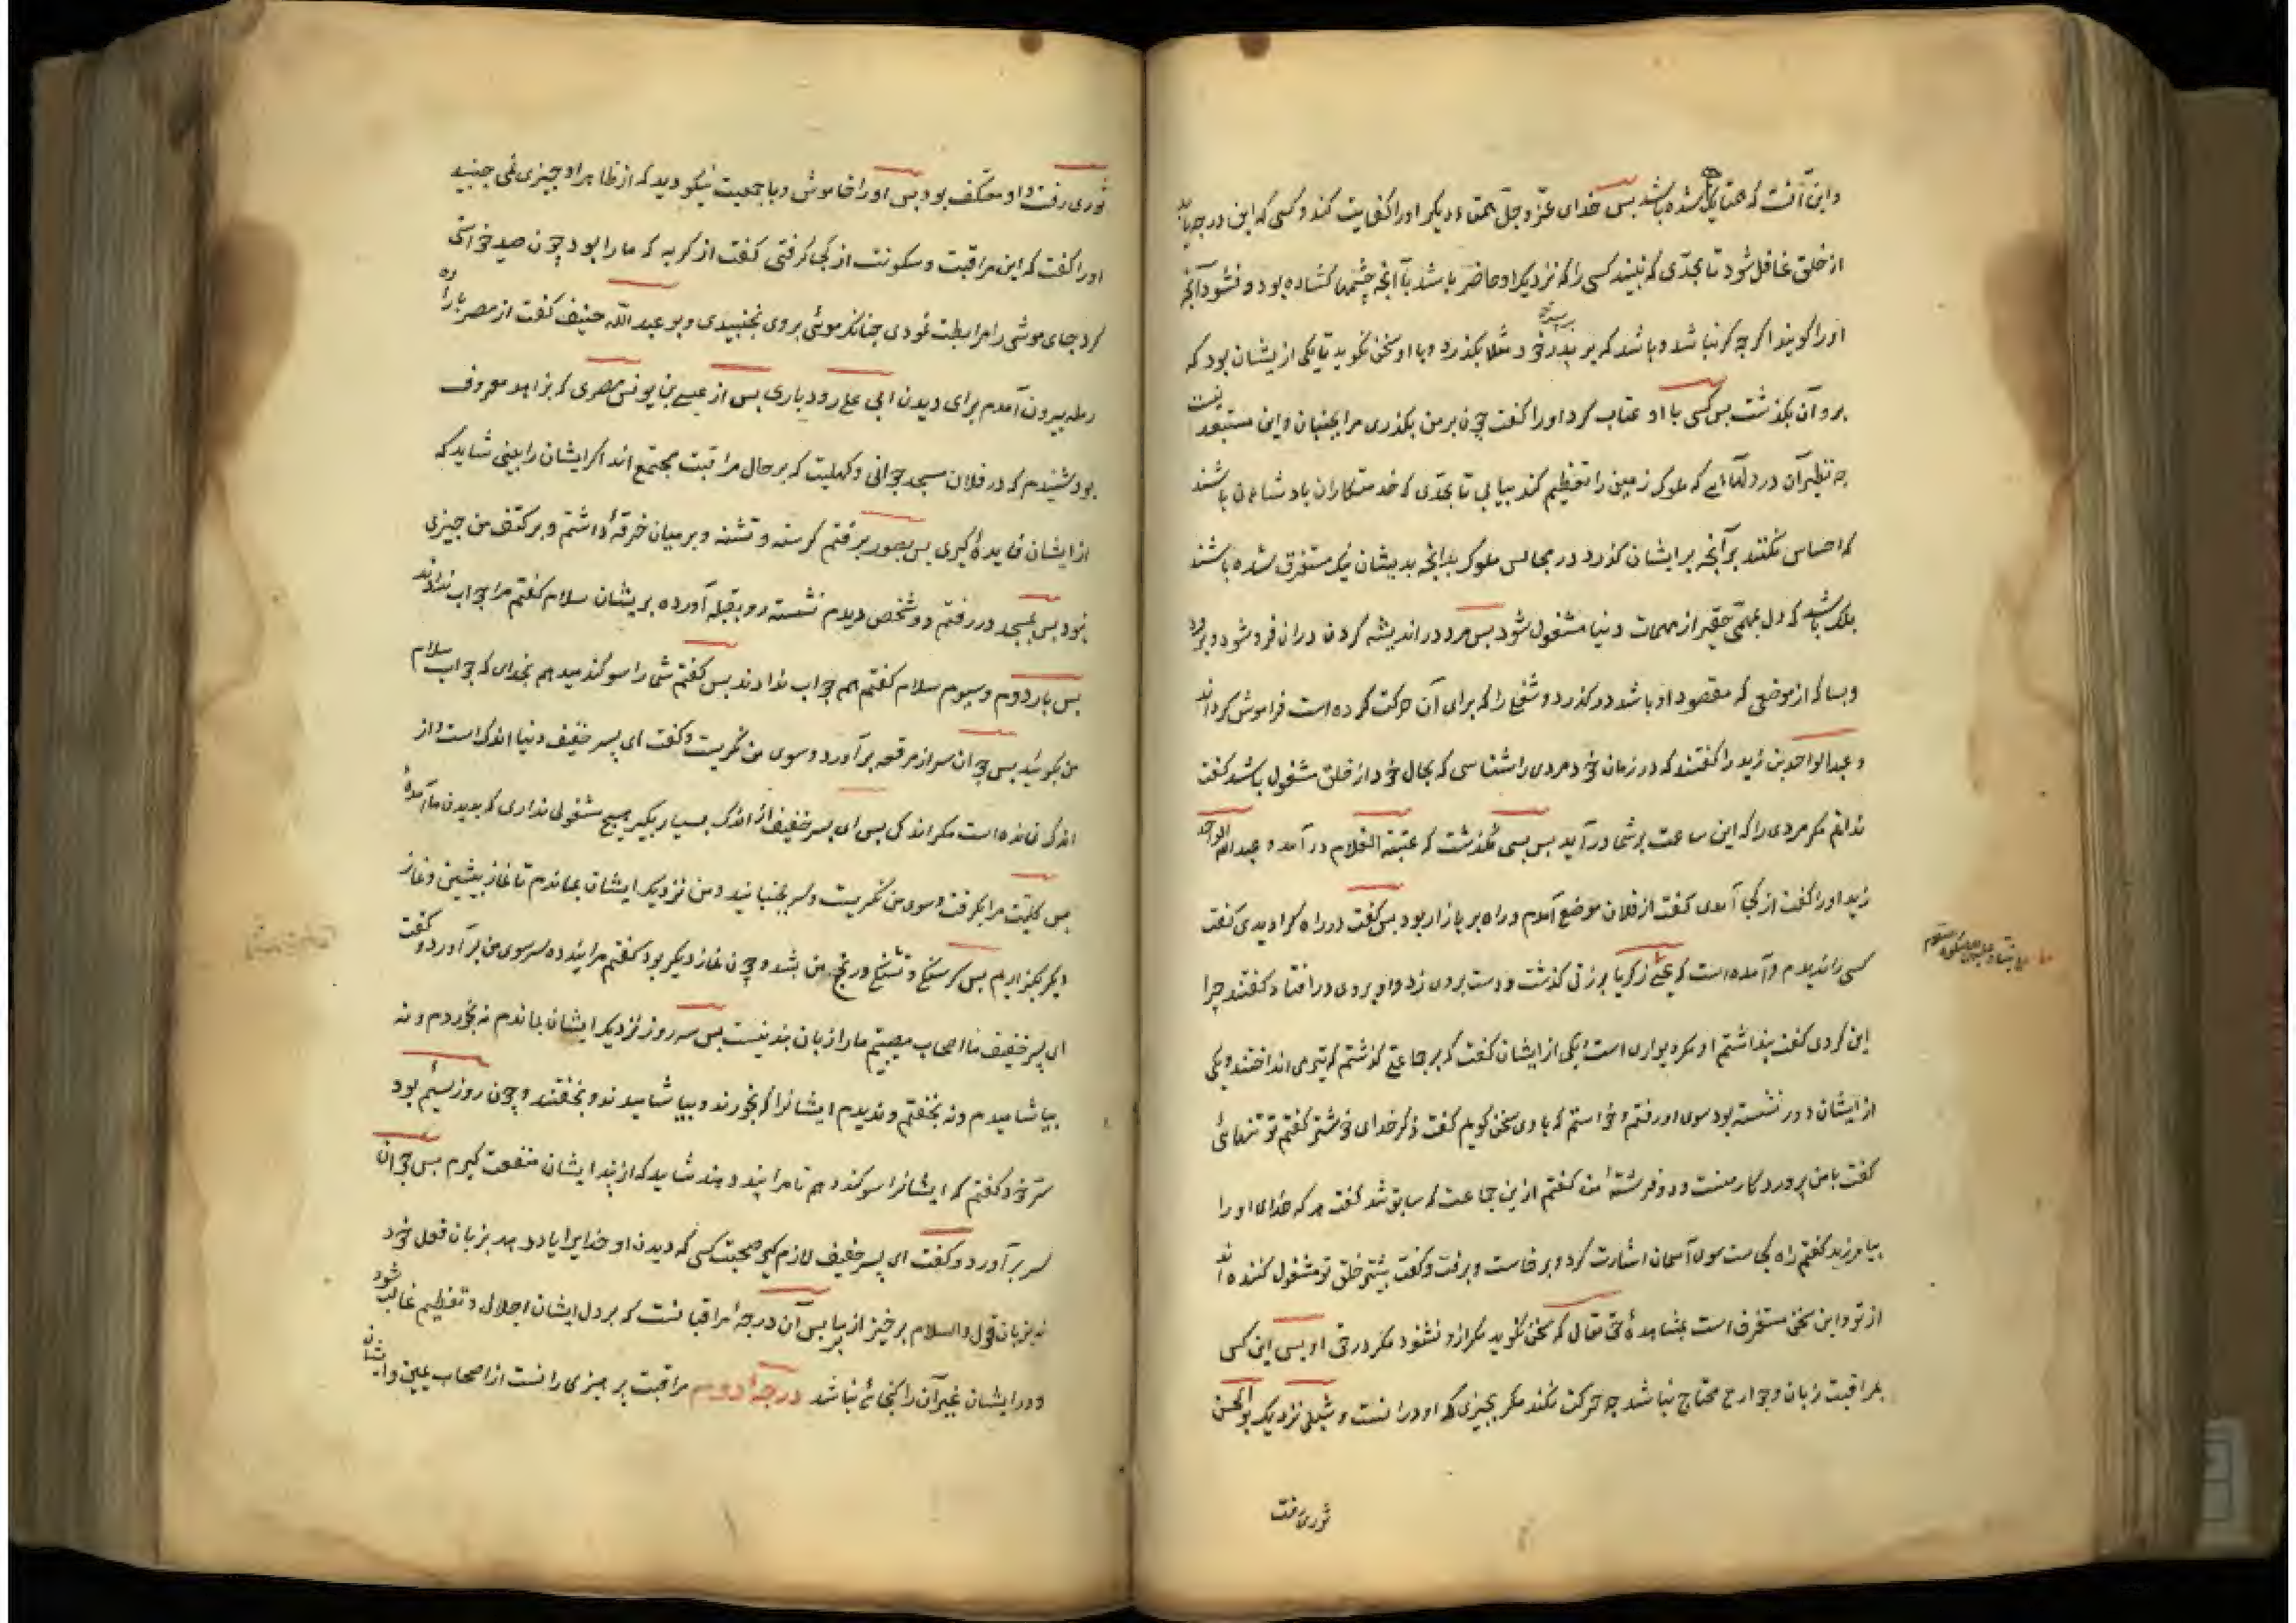 و این آنست که همت یکی شده باشد پس خدای عزّ و جلّ همتهاء دیگر او را کفایت کند و کسی که این درجه یابد
از خلق غافل شود تا بحدّی که نبیند کسی را که نزدیک او حاضر باشد با آنچه چشمها کشاده بود و نشنود آنچه
او را کویند اکر چه کر نباشد و باشد که بر پدر خود مثلا بکذرد و با او سخن نکوید تا یکی از یشان بود که
برو آن بکذشت پس کسی با او عتاب کرد او را کفت چون بر من بکذری مرا بجنبان و این مستبعد نیست
چه نظیر آن در دلهاایی که ملوک زمین را تعظیم کند بیابی تا بحدّی که خدمتکاران پادشاهان باشند
که احساس نکنند بر آنچه بر ایشان کذرد در مجالس ملوک بدانچه بدیشان نیک مستغرق شده باشند
بلک باشد که دل بمهمّی حقیر از مهمات دنیا مشغول شود پس مرد در اندیشه کردن دران فرو شود و برود
و بسا که از موضعی که مقصود او باشد در کذرد و شغلی را که برای آن حرکت کرده است فراموش کرداند
و عبد الواحد بن زید را کفتند که در زمان خود مردی را شناسی که بحال خود از خلق مشغول باشد کفت
ندانم مکر مردی را که این ساعت بر شما در آید پس بسی نکذشت که عتبة الغلام در آمد و عبد الواحد
زید او را کفت از کجا آمدی کفت از فلان موضع آمدم و راه بر بازار بود پس کفت در راه کرا دیدی کفت
کسی را ندیدم و آمده است که یحیی زکریا بر زنی کذشت و دست بروی زد و او بروی در افتاد کفتند چرا
این کردی کفت پنداشتم او مکر دیواری است یکی از ایشان کفت که بر جماعتی کذشتم که تیر می انداختند و یکی
از ایشان دور نشسته بود سوی او رفتم و خواستم که با وی سخن کویم کفت ذکر خدای خوشتر کفتم تو تنهائی
کفت با من پروردکار منست و دو فرشتۀ من کفتم ازین جماعت که سابق شد کفت هر که خدای او را
بیامرزید کفتم راه کجاست سوی آسمان اشارت کرد و برخاست و برفت و کفت بیشتر خلق تو مشغول کننده اند
از تو و این سخن مستغرق است بمشاهدۀ حق تعالی که سخن نکوید مکر ازو و نشنود مکر در حق او پس این کس
بمراقبت زبان و جوارح محتاج نباشد چه حرکت نکند مکر بچیزی که او درانست و شبلی نزدیک بو الحسن
ثوری رفت
ثوری رفت و او معتکف بود پس او را خاموش و با جمعیت نیکو دید که از ظاهر او چیزی نمی جنبید
او را کفت که این مراقبت و سکونت از کجا کرفتی کفت از کربه که ما را بود چون صید خواستی
کرد جای موشی را مرابطت نمودی چنانک موئی بروی نجنبیدی و بو عبد اللّه خفیف کفت از مصر با راده
رمله بیرون آمدم برای دیدن ابی علی رودباری پس از عیسی بن یونس مصری که بزاهد معروف
بود شنیدم که در فلان مسجد جوانی و کهلیت که بر حال مراقبت مجتمع اند اکر ایشان را بینی شاید که
از ایشان فایدۀ کیری پس بصور برفتم کرسنه و تشنه و بر میان خرقۀ داشتم و بر کتف من چیزی
نبود پس بمسجد در رفتم دو شخص دیدم نشسته رو بقبله آورده بریشان سلام کفتم مرا جواب ندادند
پس بار دوم و سیوم سلام کفتم هم جواب ندادند پس کفتم شما را سوکند میدهم بخدای که جواب سلام
من بکوئید پس جوان سر از مرقعه بر آورد و سوی من نکریست و کفت ای پسر خفیف دنیا اندک است و از
اندک نمانده است مکر اندکی پس ای پسر خفیف از اندک بسیار بکیر هیچ مشغولی نداری که بدیدن ما آمدۀ
پس کلیّت مرا بکرفت و سوی من نکریست و سر بجنبانید و من نزدیک ایشان بماندم تا نماز پیشین و نماز
دیکر بکزاردیم پس کرسنکی و تشنکی و رنج من بشد و چون نماز دیکر بود کفتم مرا پند ده سر سوی من بر آورد و کفت
ای پسر خفیف ما اصحاب مصیبتیم ما را زبان پند نیست پس سه روز نزدیک ایشان بماندم نه بخوردم و نه
بیاشامیدم و نه بخفتم و ندیدم ایشانرا که بخورند و بیاشامیدند و بخفتند و چون روز سیم بود
بسّر خود کفتم که ایشانرا سوکند دهم تا مرا پند دهند شاید که از پند ایشان منفعت کیرم پس جوان
سر بر آورد و کفت ای پسر خفیف لازم کیر صحبت کسی که دیدن او خدایرا یاد دهد بزبان فعل خود
نه بزبان قول و السلام برخیز از بر ما پس آن درجۀ مراقبانست که بر دل ایشان اجلال و تعظیم غالب شود
و در ایشان غیر آن را کنجائی نباشد درجۀ دوم مراقبت پرهیزکارانست از اصحاب یمین و ایشان